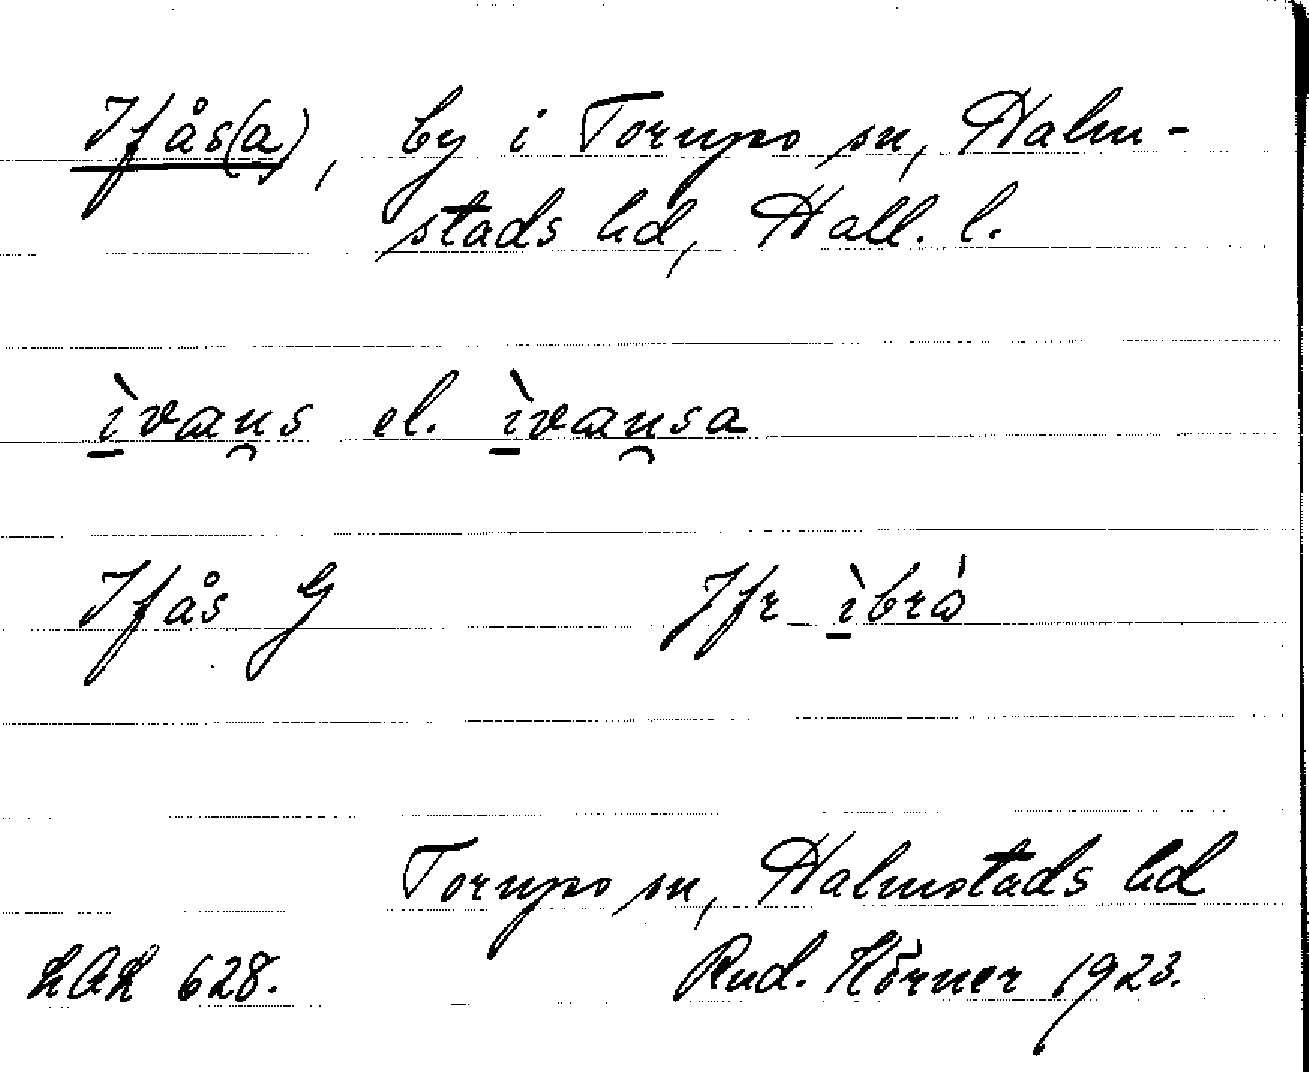 Ifås(a), by i Torups sn, Halm-
stads hd, Hall. l.
ìvans el. ìvansa
Ifås G Jfr ìbrá
Torups sn, Halmstads hd
LAL 628. Rud. Hörner 1923.